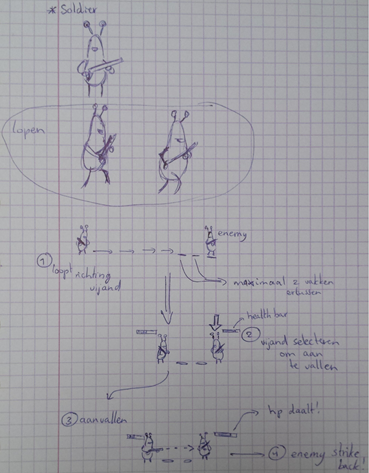 * Soldier
lopen
enemy
① loopt richting
vijand
maximaal 2 vakken
ertussen
healthbar
② vijand selecteren
om aan
te vallen
③ aanvallen
hp daalt!
④ enemy strike
back!